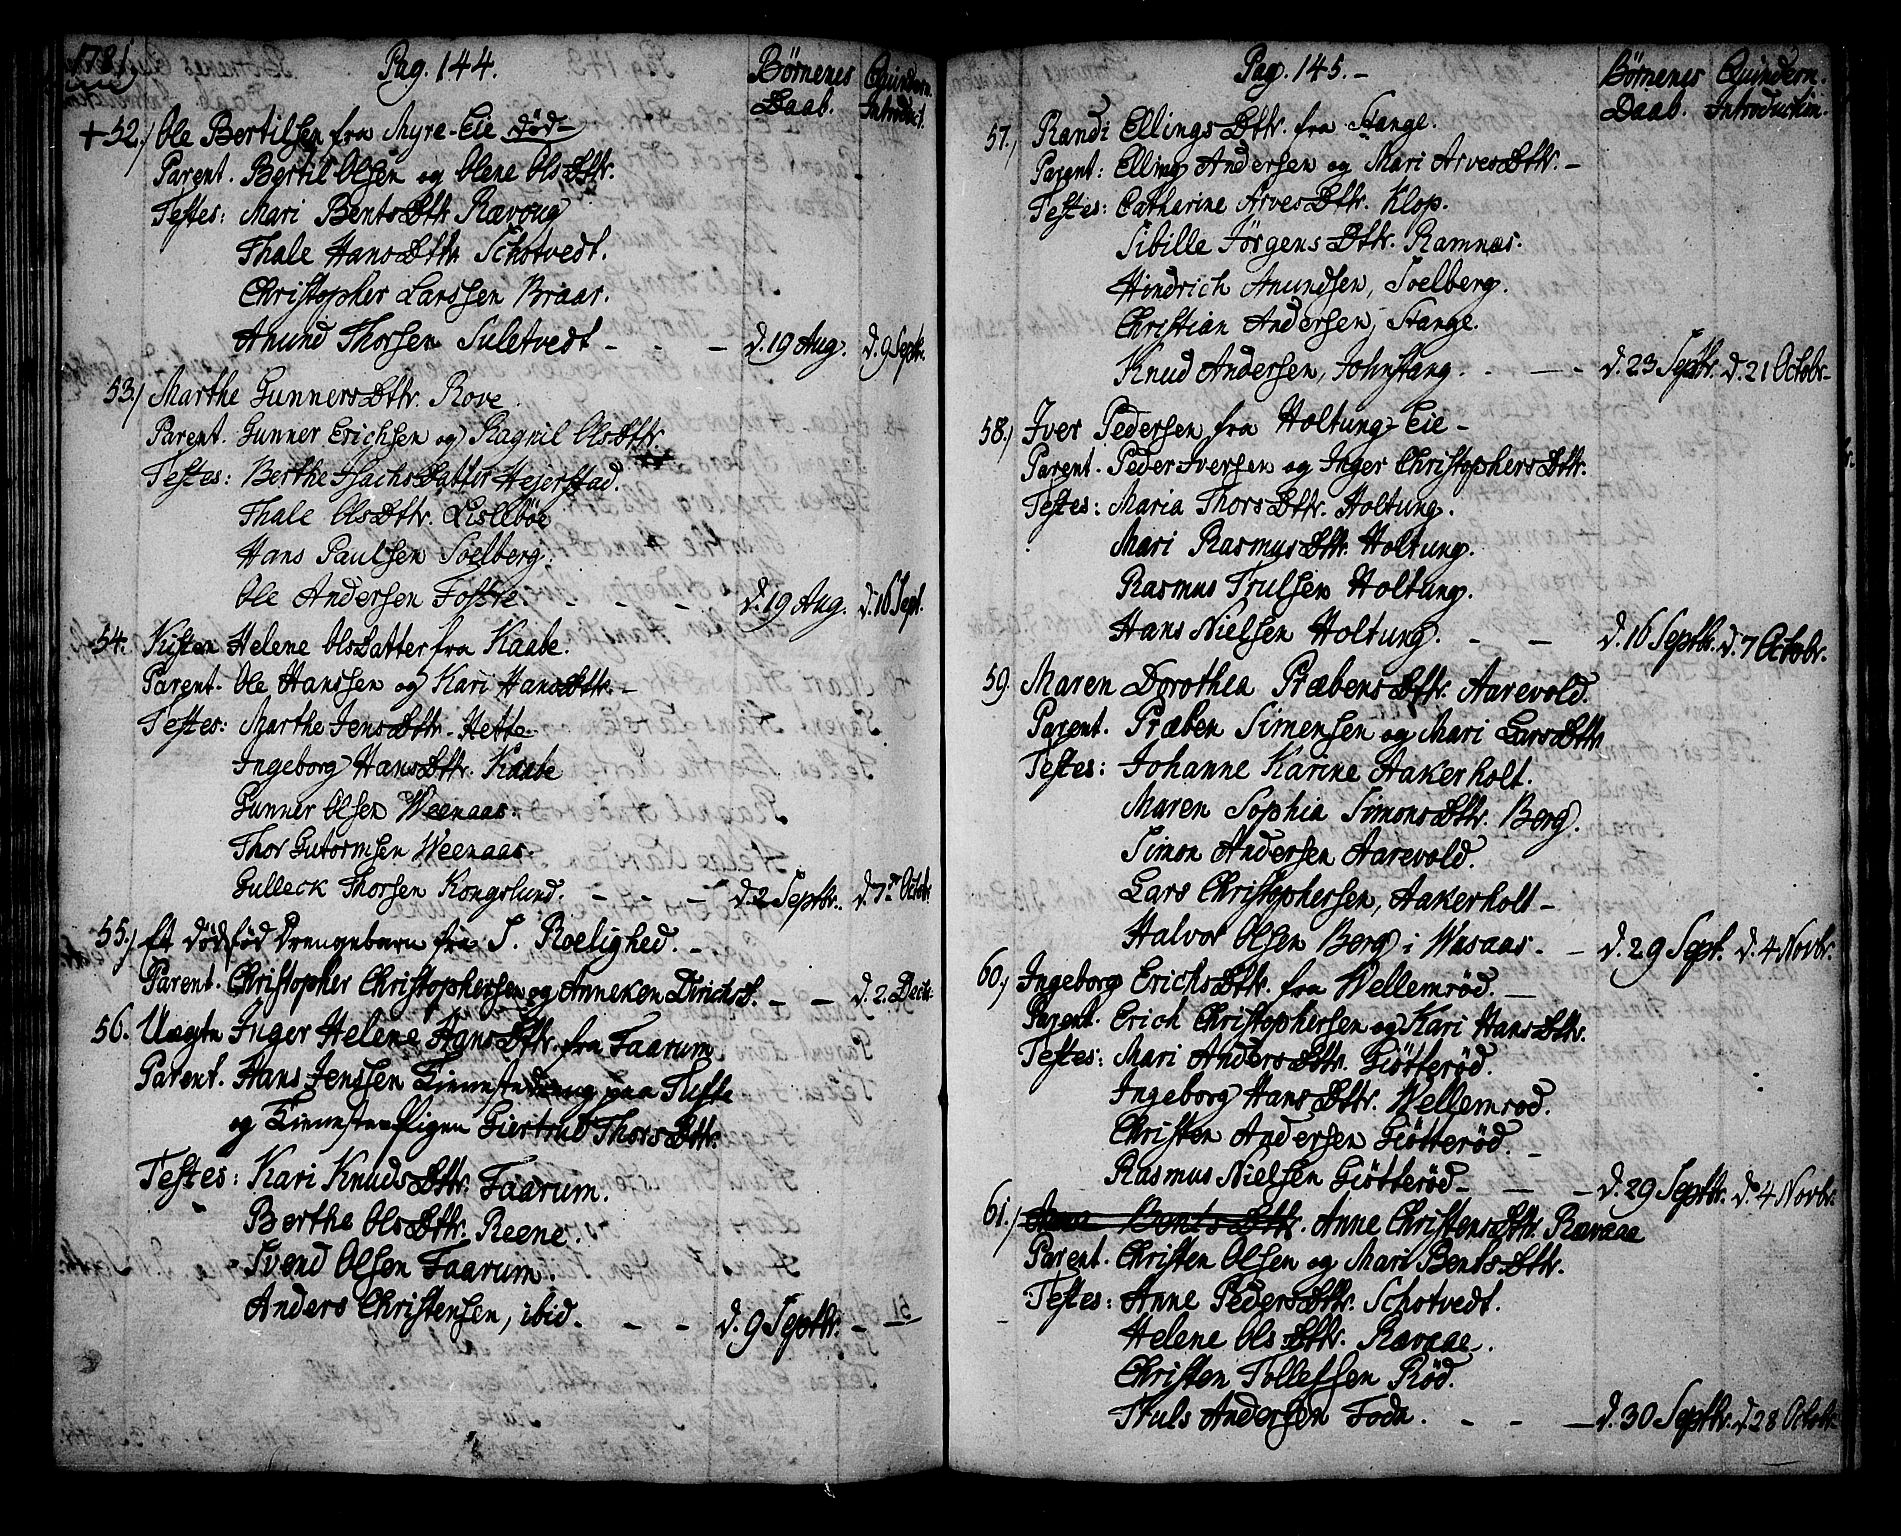 1781
Pag. 144.
Börnenes Daab.
Qvindern. Introduct.
+ 52.) Ole Bertilsen fra Myre-Eie død-
Parent. Bertil Olsen og Olene OlsDttr.
Testes: Mari BentsDttr Rævoug
Thale HansDttr Schotvedt.
Christopher Larssen Braar.
Anund Thorsen Suletvedt - - - d. 19 Aug. d. 9 Septr.
53.) Marthe GunnersDttr. Rove.
Parent. Gunner Erichsen og Ragnil OlsDttr.
Testes: Berthe IsachsDatter Hejerstad.
Thale OlsDttr. Lislebøe
Hans Paulsen Soelberg.
Ole Andersen Fosse. - - - d. 19 Aug. d. 16 Sept.
54. Kisten Helene OlsDatter fra Kaabe.
Parent. Ole Hanssen og Kari HansDttr. -
Testes: Marthe JensDttr. Hette
Ingeborg HansDttr. Kaabe
Gunner Olsen Weenaas.
Thor Gutormsen Weenaas.
Gulleck Thorsen Kongslund. - - - d. 2 Septbr. d. 7de Octobr.
55.) Et dødfød Drengebarn fra S. Roelighed. -
Parent. Christopher Christophersen og Anneken DirichsD. - - d. 2. Decbr.
56. Uægte Inger Helene HansDttr. fra Faarum.
Parent. Hans Jenssen Tienestedreng paa Tufte
og Tieneste-Pigen Giertrud ThorsDttr.
Testes: Kari KnudsDttr. Faarum.
Berthe OlsDttr. Reene.
Svend Olsen Faarum.
Anders Christensen, ibid. - - d. 9 Septbr. - -
51
Pag. 145. -
Börnenes Daab.
Qvindern. Introduction.
57.) Randi EllingsDttr. fra Stange.
Parent: Elling Andersen og Mari ArvesDttr. -
Testes: Catharine ArvesDttr. Klop.
Sibille JörgensDttr. Ramnæs.
Hindrich Anundsen, Soelberg.
Christian Andersen, Stange.
Knud Andersen, Johnstang. - - - d. 23 Septbr. d. 21 Octobr.
58.) Iver Pedersen fra Holtung-Eie -
Parent. Peder Iversen og Inger ChristophersDttr.
Testes: Maria ThorsDttr. Holtung.
Mari RasmusDttr. Holtung.
Rasmus Trulsen Holtung.
Hans Nielsen Holtung. - - d. 16 Septbr. d. 7 Octobr.
59. Maren Dorothea PræbensDttr. Aarevold.
Parent. Præben Simensen og Mari LarsDttr
Testes: Johanne Karine Aakerholt.
Maren Sophia SimonsDttr. Berg.
Simon Andersen Aarevold.
Lars Christophersen, Aakerholt -
Halvor Olsen Berg i Waasaas. - d. 29 Sept. d. 4 Novbr.
60.) Ingeborg ErichsDttr. fra Wellemrød. -
Parent. Erich Christophersen og Kari HansDttr.
Testes: Mari AndersDttr. Giøtterød.
Ingeborg HansDttr. Wellemrød.
Christen Andersen Giøtterød. -
Rasmus Nielsen Giøtterød - - - d. 29 Septbr. d. 4 Novbr.
61.) Anne BentsDttr. Anne ChristensDttr. Rævaae
Parent. Christen Olsen og Mari BentsDttr.
Testes: Anne PedersDttr. Schotvedt.
Helene OlsDttr. Rævaae.
Christen Tollefsen Rød.
Truls Andersen Foda. - - - d. 30 Septbr. d. 28 Octobr.